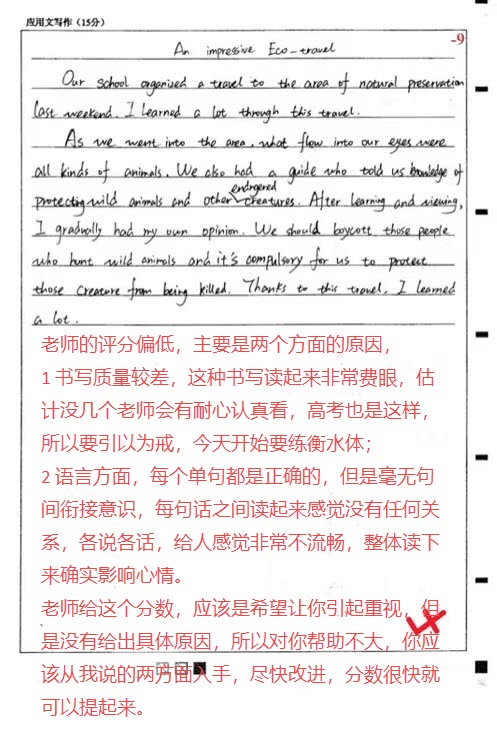 应用文写作（15分）
-9
An impressive Eco-travel
Our school organized a travel to the area of natural preservation
last weekend. I learned a lot through this travel.
As we went into the area, what flew into our eyes were
all kinds of animals. We also had a guide who told us knowledge of
endangered
protecting wild animals and other creatures. After learning and viewing,
I gradually had my own opinion. We should boycott those people
who hunt wild animals and it's compulsory for us to protect
those creature from being killed. Thanks to this travel, I learned
a lot.
老师的评分偏低，主要是两个方面的原因，
1 书写质量较差，这种书写读起来非常费眼，估
计没几个老师会有耐心认真看，高考也是这样，
所以要引以为戒，今天开始要练衡水体；
2 语言方面，每个单句都是正确的，但是毫无句
间衔接意识，每句话之间读起来感觉没有任何关
系，各说各话，给人感觉非常不流畅，整体读下
来确实影响心情。
老师给这个分数，应该是希望让你引起重视，但
是没有给出具体原因，所以对你帮助不大，你应
该从我说的两方面入手，尽快改进，分数很快就
可以提起来。